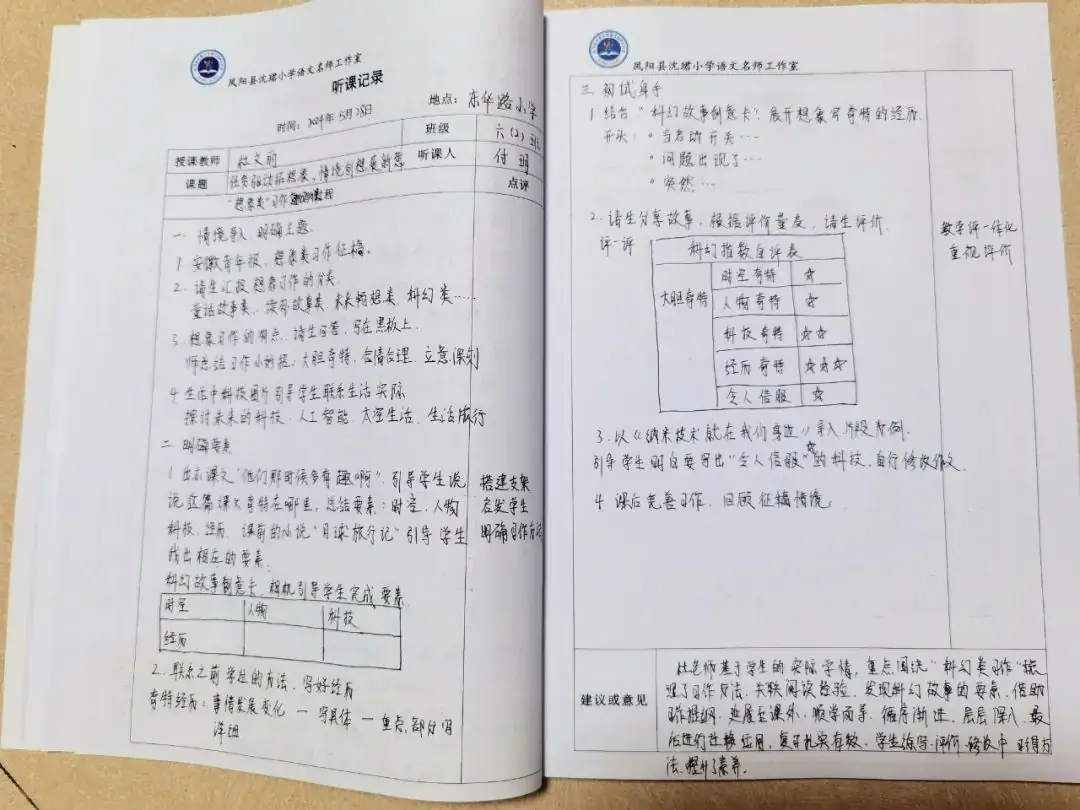 凤阳县沈珺小学语文名师工作室
听课记录
时间：2024年5月28日
地点：东华路小学
授课教师 杜文丽 班级 六（2）班
课题 任务驱动拓想象，情境创想展新意 听课人 付
"想象类"习作 点评
一 情境导入 明确主题
1. 安徽青年报，想象类习作征稿。
2. 请生汇报 想象习作的分类
童话故事类、读故事类、未来畅想类、科幻类……
3. 想象习作的有点，请生回答，写在黑板上.
师总结习作小妙招：大胆奇特，合情合理，立意深刻
4. 生活中科技图片引导学生联系生活实际
探讨未来的科技、人工智能、太空生活、生活旅行
二 明确要素
1. 出示课文"他们那时候多有趣啊"引导学生说
说这篇课文奇特在哪里，总结要素：时空、人物
科技、经历. 课前的小说"月球旅行记"引导学生
找出相应的要素.
搭建支架
启发学生
明确习作方法
科幻故事创意卡，相机引导学生完成要素
时空 人物 科技
经历
2. 联系之前学过的方法，写好经历
奇特经历：事情发展变化 — 写具体 — 重点部分写
详细
凤阳县沈珺小学语文名师工作室
三 初试身手
1 结合"科幻故事创意卡"展开想象写奇特的经历.
开头：·当启动开关……
·问题出现了…
·突然…
2. 请生分享故事，根据评价量表，请生评价.
评一评
科幻指数自评表
大胆奇特 时空奇特 ☆
人物奇特 ☆
科技奇特 ☆☆
经历奇特 ☆☆☆
令人信服 ☆
教学评一体化
重视评价
3. 以《纳米技术就在我们身边》导入片段为例.
引导学生明白要写出"令人信服"的科技，自行修改作文.
4. 课后完善习作，回顾征稿情境。
建议或意见
杜老师基于学生的实际学情，重点围绕"科幻类习作"梳
理了习作方法，关联阅读经验，发现科幻故事的要素，借助
习作提纲，延展至课外，顺学而导，循序渐进，层层深入，最
后进行迁移运用，扎实有效，学生练写、评价、修改中习得方
法，提升了素养。